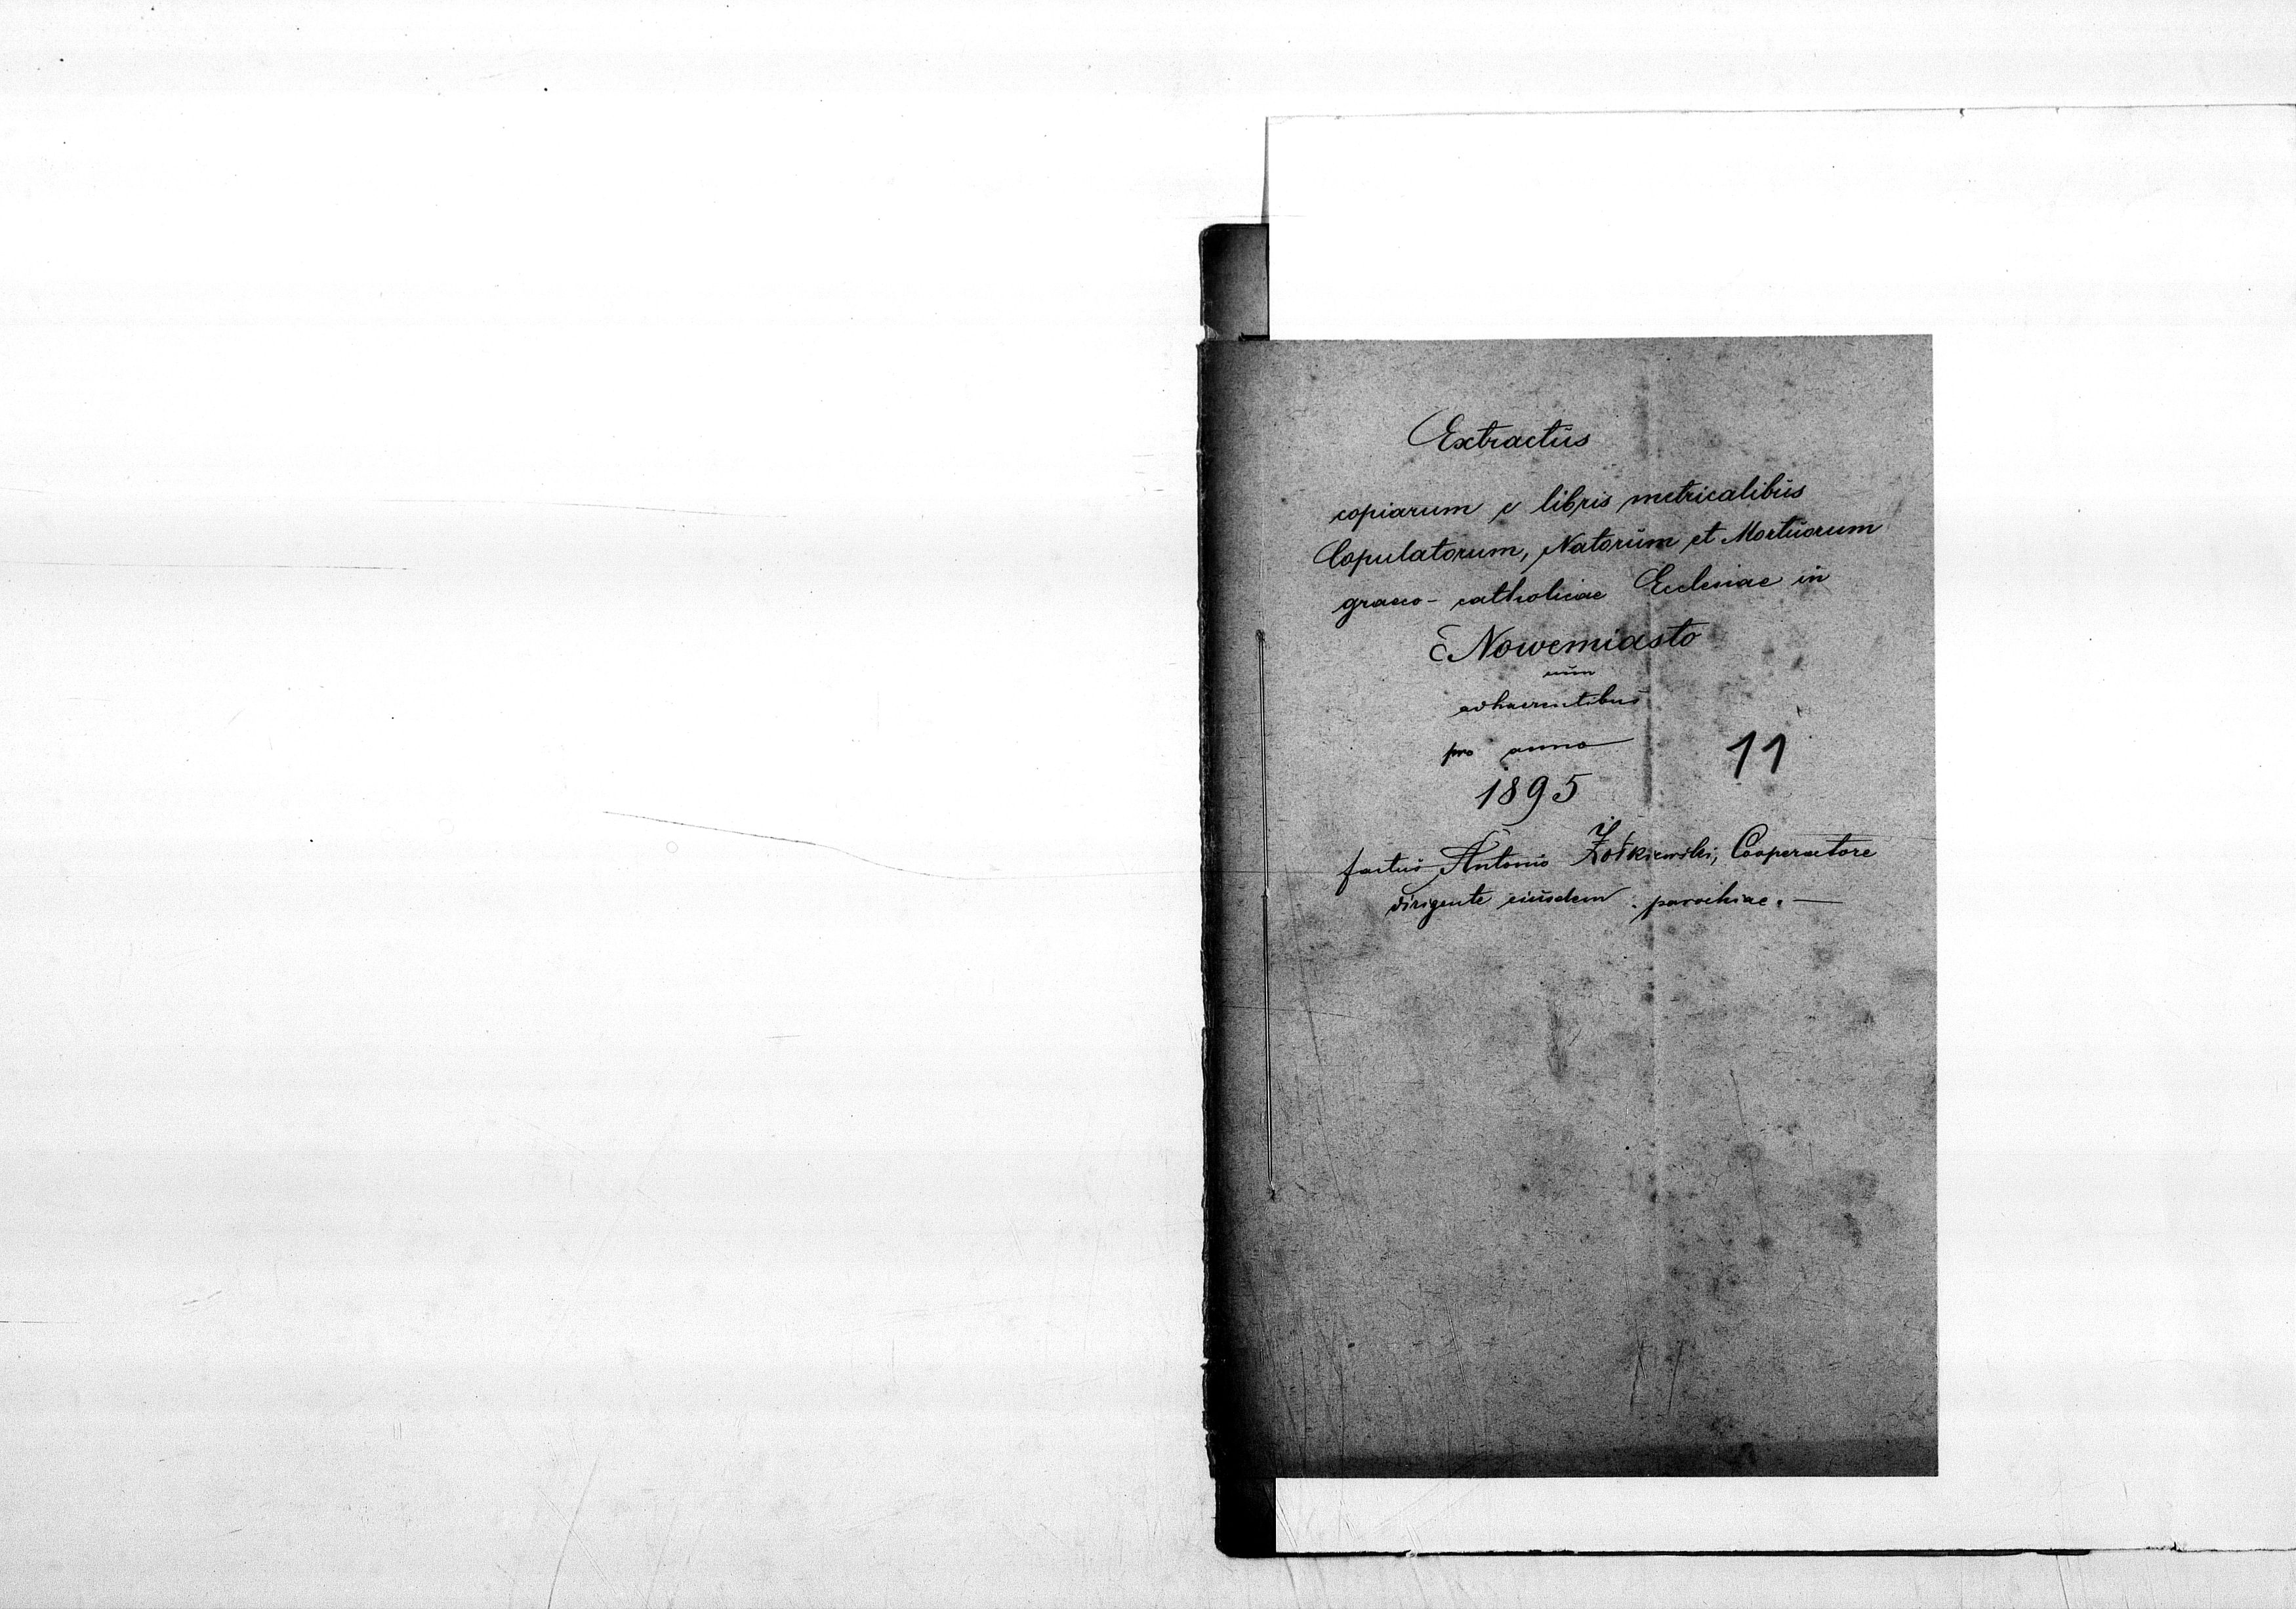 Extractus
copiarum e libris metricalibus
Copulatorum, Natorum et Mortuorum
graeco-catholicae Ecclesiae in
Nowemiasto
cum
adhaerentibus
pro anno
1895
11
factus Antonio Żołkiewski, Cooperatore
dirigente eiusdem parochiae.—